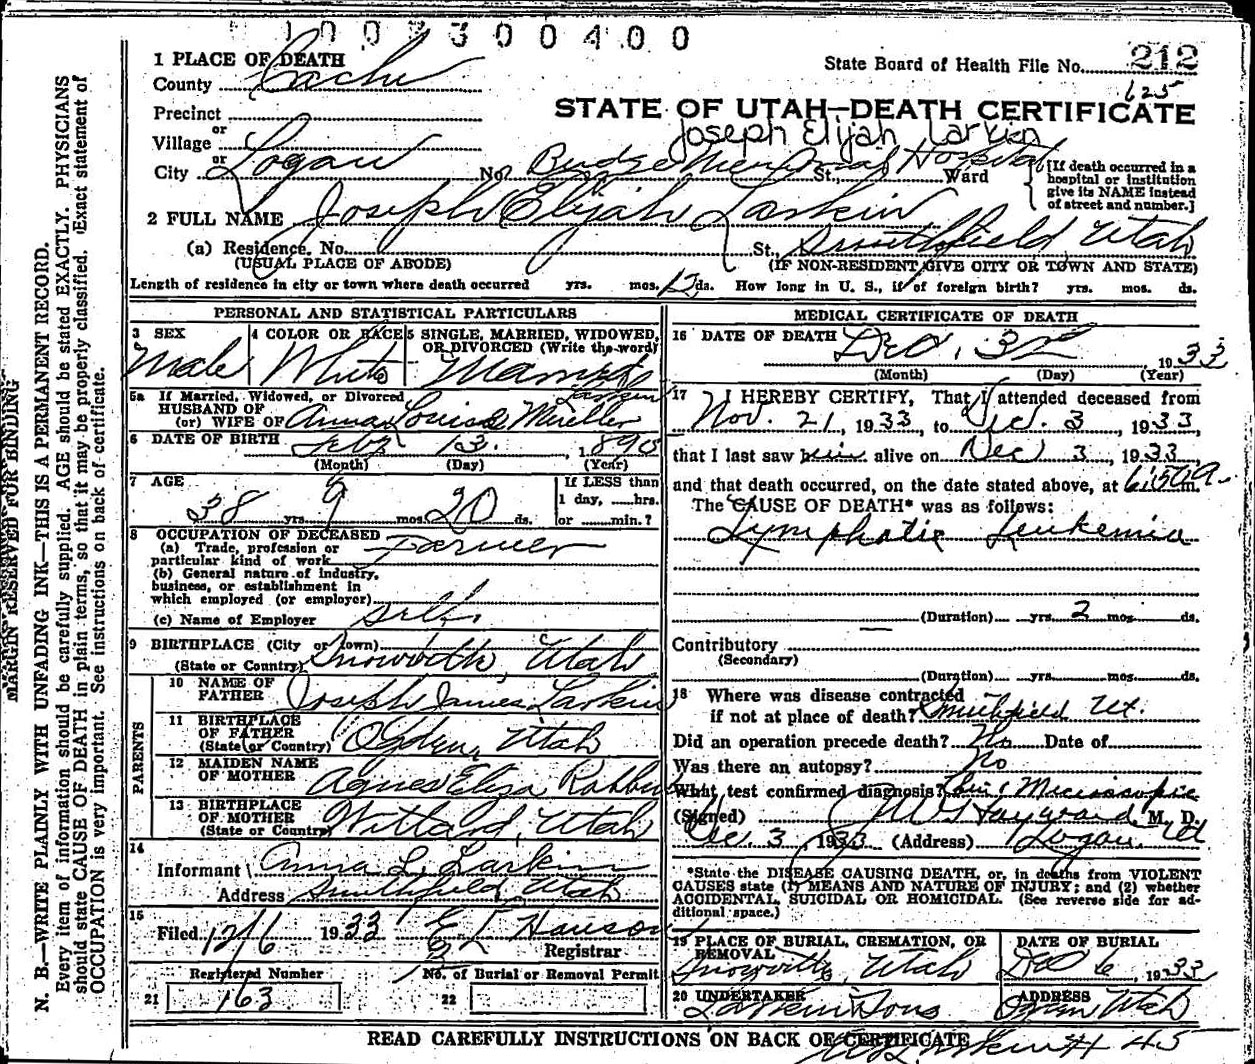 1 0 0 3 3 0 0 4 0 0
1 PLACE OF DEATH
County Cache
State Board of Health File No. 212
625
Precinct
STATE OF UTAH—DEATH CERTIFICATE
or
Village
Joseph Elijah Larkin
or
City Logan No. Budge Memorial Hospital St., Ward
[If death occurred in a hospital or institution give its NAME instead of street and number.]
2 FULL NAME Joseph Elijah Larkin
(a) Residence. No. St., Smithfield Utah
(USUAL PLACE OF ABODE) (IF NON-RESIDENT GIVE CITY OR TOWN AND STATE)
Length of residence in city or town where death occurred yrs. mos. 12 ds. How long in U. S., if of foreign birth? yrs. mos. ds.
PERSONAL AND STATISTICAL PARTICULARS
3 SEX
Male
4 COLOR OR RACE
White
5 SINGLE, MARRIED, WIDOWED, OR DIVORCED (Write the word)
Married
5a If Married, Widowed, or Divorced
HUSBAND OF
(or) WIFE OF Anna Louise Mueller Larkin
6 DATE OF BIRTH Feb 13, 1890
(Month) (Day) (Year)
7 AGE
38 yrs. 9 mos. 20 ds.
If LESS than
1 day, hrs.
or min.?
8 OCCUPATION OF DECEASED
(a) Trade, profession or
particular kind of work Farmer
(b) General nature of industry,
business, or establishment in
which employed (or employer)
(c) Name of Employer self
9 BIRTHPLACE (City or town)
(State or Country) Snowville, Utah
PARENTS
10 NAME OF
FATHER Joseph James Larkin
11 BIRTHPLACE
OF FATHER
(State or Country) Ogden, Utah
12 MAIDEN NAME
OF MOTHER Agnes Eliza
13 BIRTHPLACE
OF MOTHER
(State or Country) Willard, Utah
14
Informant Anna L. Larkin
Address Smithfield Utah
15
Filed 12/6 1933 Hanson
Registrar
Registered Number No. of Burial or Removal Permit
21 163 22
MEDICAL CERTIFICATE OF DEATH
16 DATE OF DEATH Dec. 3 1933
(Month) (Day) (Year)
17 I HEREBY CERTIFY, That I attended deceased from
Nov. 21, 1933, to Dec. 3, 1933,
that I last saw him alive on Dec 3, 1933,
and that death occurred, on the date stated above, at 6:50 a.m.
The CAUSE OF DEATH* was as follows:
Lymphatic Leukemia
(Duration) yrs. 2 mos. ds.
Contributory
(Secondary)
(Duration) yrs. mos. ds.
18 Where was disease contracted
if not at place of death? Smithfield Ut.
Did an operation precede death? No Date of
Was there an autopsy? No
What test confirmed diagnosis? Microscopic
(Signed) Hayward M. D.
Dec. 3, 1933 (Address) Logan, Ut
*State the DISEASE CAUSING DEATH, or, in deaths from VIOLENT
CAUSES state (1) MEANS AND NATURE OF INJURY; and (2) whether
ACCIDENTAL, SUICIDAL OR HOMICIDAL. (See reverse side for ad-
ditional space.)
19 PLACE OF BURIAL, CREMATION, OR
REMOVAL
Snowville, Utah
DATE OF BURIAL
Dec 6, 1933
20 UNDERTAKER
Larkin Sons
ADDRESS
Ogden Utah
READ CAREFULLY INSTRUCTIONS ON BACK OF CERTIFICATE
45
MARGIN RESERVED FOR BINDING
N. B.—WRITE PLAINLY WITH UNFADING INK—THIS IS A PERMANENT RECORD.
Every item of information should be carefully supplied. AGE should be stated EXACTLY. PHYSICIANS
should state CAUSE OF DEATH in plain terms, so that it may be properly classified. Exact statement of
OCCUPATION is very important. See instructions on back of certificate.